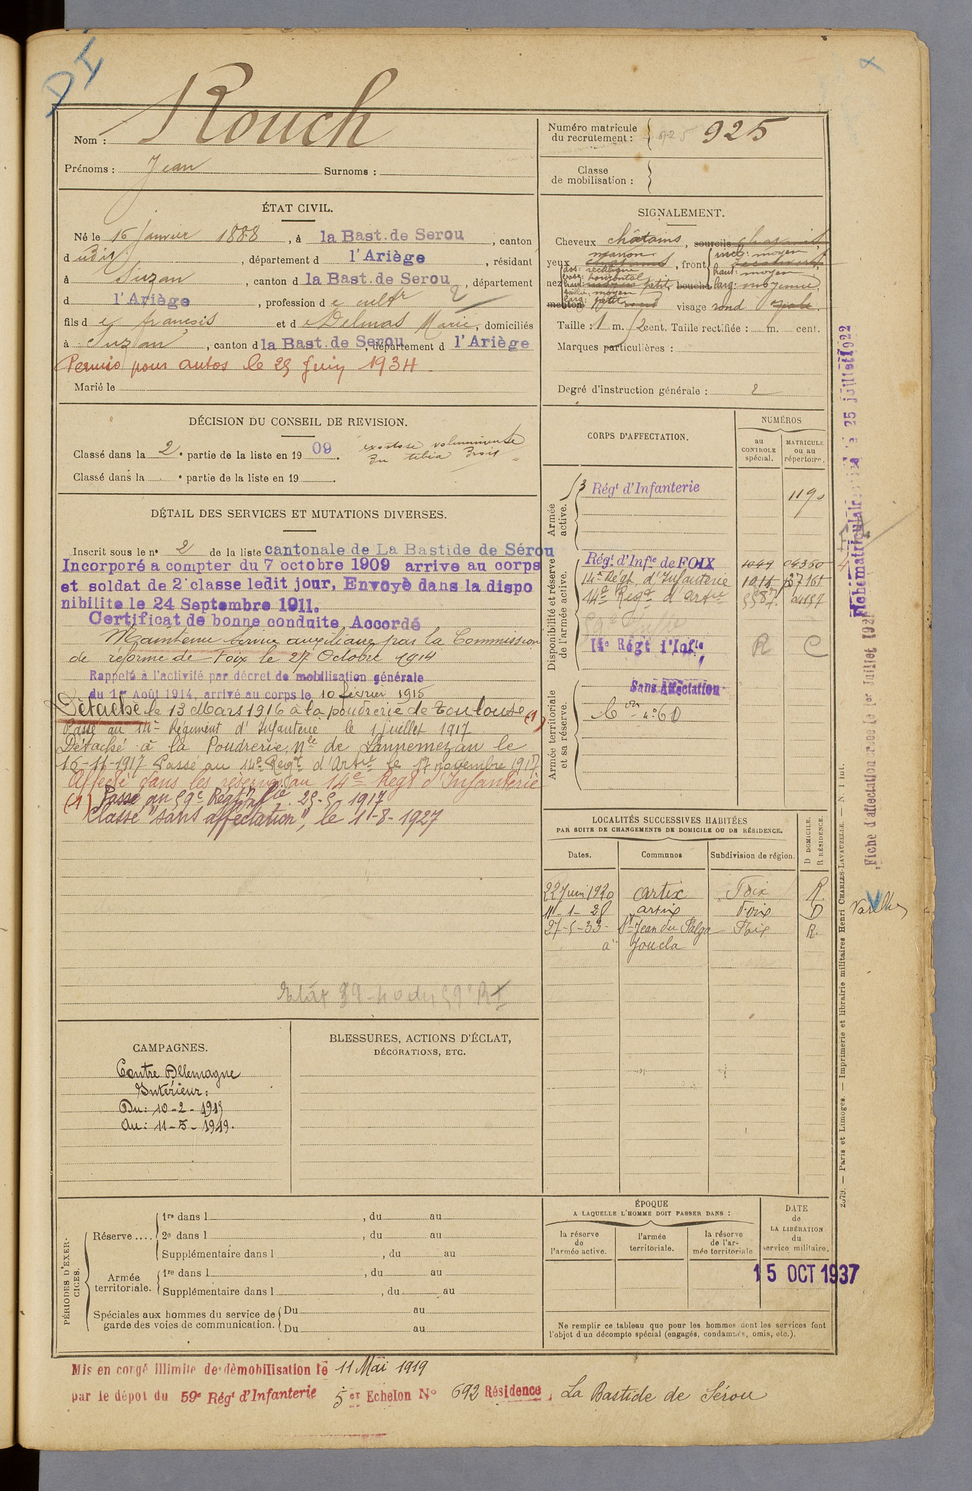 DI
Nom : Rouch
Prénoms : Jean Surnoms :
Numéro matricule du recrutement : 925 925
Classe de mobilisation :
ÉTAT CIVIL.
Né le 16 Janvier 1888, à la Bast. de Serou, canton
dudit, département d l'Ariège, résidant
à Suzan, canton d la Bast. de Serou, département
d l'Ariège, profession de cultr 2
fils de françois et de Delmas Marie, domiciliés
à Suzan, canton d la Bast. de Serou, département d l'Ariège
Permis pour autos le 29 Juin 1934
Marié le
SIGNALEMENT.
Cheveux châtains, sourcils
yeux marron, front incl: moyen
haut: moyen
larg: moyenne
nez dos: rectiligne
base: horizontal
haut: petit, bouche
saillie: moyen
larg: petit
menton rond visage rond
Taille : 1 m. cent. Taille rectifiée : m. cent.
Marques particulières :
Degré d'instruction générale : 2
DÉCISION DU CONSEIL DE REVISION.
Classé dans la 2e partie de la liste en 1909. exostose volumineuse
du tibia droit
Classé dans la e partie de la liste en 19
DÉTAIL DES SERVICES ET MUTATIONS DIVERSES.
Inscrit sous le n° 2 de la liste cantonale de La Bastide de Sérou
Incorporé a compter du 7 octobre 1909 arrive au corps
et soldat de 2e classe ledit jour, Envoyé dans la dispo
nibilite le 24 Septembre 1911.
Certificat de bonne conduite Accordé
Maintenu Service auxiliaire par la Commission
de réforme de Foix le 27 Octobre 1914
Rappelé à l'activité par décret de mobilisation générale
du 1er Août 1914, arrivé au corps le 10 février 1915
Détaché le 13 Mars 1916 à la poudrerie de Toulouse (1)
Passé au 14e Régiment d'Infanterie le 1 Juillet 1917
Détaché à la Poudrerie Nle de Lannemezan le
16-11-1917 Passé au 14e Régt d'Artie le 17 novembre 1917
Affecté dans les réserves au 14e Regt d'Infanterie
(1) Passé au 59e Régt d'Infie 25-5 1917
Classé "sans affectation", le 1-8-1927
Etat 39-40 du 59e RI
CORPS D'AFFECTATION.
NUMÉROS
au CONTROLE spécial.
MATRICULE ou au répertoire.
Armée active.
Régt d'Infanterie
Disponibilité et réserve de l'armée active.
Régt d'Infie de FOIX
14e Régt d'Infanterie
14e Regt d'Artie
14e Régt d'Infie R C
Armée territoriale et sa réserve.
Sans Affectation
LOCALITÉS SUCCESSIVES HABITÉES
PAR SUITE DE CHANGEMENTS DE DOMICILE OU DE RÉSIDENCE.
Dates. Communes Subdivision de région. D DOMICILE. R RÉSIDENCE.
22 Juin 1920 artix Foix R
11-1-28 artix Foix D
27-5-33 St Jean du Falga Foix R.
a Joucla
Varilhes
CAMPAGNES.
Contre Allemagne
Intérieur:
Du: 10-2-1915
Au: 11-5-1919.
BLESSURES, ACTIONS D'ÉCLAT,
DÉCORATIONS, ETC.
PÉRIODES D'EXERCICES.
Réserve .... 1re dans l , du au
2e dans l , du au
Supplémentaire dans l , du au
Armée territoriale. 1re dans l , du au
Supplémentaire dans l , du au
Spéciales aux hommes du service de garde des voies de communication. Du au
Du au
ÉPOQUE
A LAQUELLE L'HOMME DOIT PASSER DANS :
la réserve de l'armée active.
l'armée territoriale.
la réserve de l'armée territoriale
DATE de LA LIBÉRATION du service militaire.
15 OCT 1937
Ne remplir ce tableau que pour les hommes dont les services font
l'objet d'un décompte spécial (engagés, condamnés, omis, etc.).
Mis en congé illimité de démobilisation le 11 Mai 1919
par le dépot du 59e Régt d'Infanterie 5er Echelon N° 692 Résidence, La Bastide de Sérou
2079. — Paris et Limoges. — Imprimerie et librairie militaires Henri CHARLES-LAVAUZELLE. — N° 1 int.